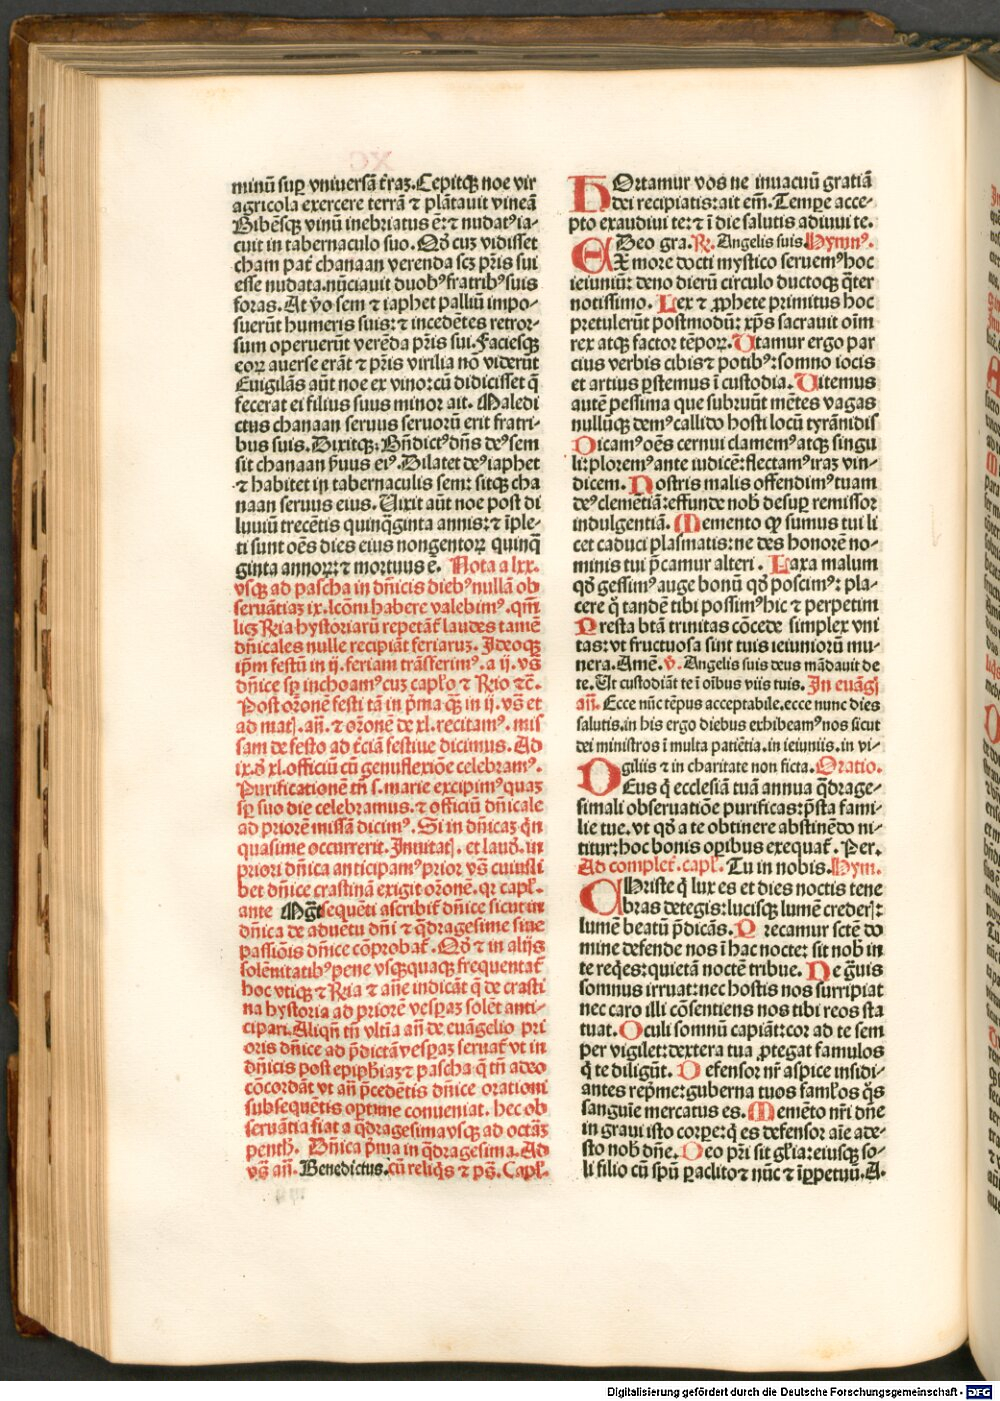 minū suꝑ vniuersā t̄raꝫ. Cepitqꝫ noe vir
agricola exercere terrā ⁊ plātauit vineā
Bibēsqꝫ vinū inebriatus ē: ⁊ nudatꝰ ia-
cuit in tabernaculo suo. Qḋ cuꝫ vidisset
cham pat̄ chanaan verenda scꝫ pr̄is sui
esse nudata. nūciauit duobꝰ fratribꝰ suis
foras. At v̄o sem ⁊ iaphet palliū impo-
suerūt humeris suis: ⁊ incedētes retror-
sum operuerūt verēda pr̄is sui. Faciesqꝫ
eoꝝ auerse erāt ⁊ pr̄is virilia nō viderūt
Euigilās aūt noe ex vino: cū didicisset q̄
fecerat ei filius suus minor ait. Maledi
ctus chanaan seruus seruorū erit fratri-
bus suis. Dixitqꝫ: Bn̄dictꝰ dn̄s deꝰ sem
sit chanaan ẜuus eiꝰ. Dilatet deꝰ iaphet
⁊ habitet in tabernaculis sem: sitqꝫ cha
naan seruus eius. Vixit aūt noe post di
luuiū trecētis quinq̄ginta annis: ⁊ īple-
ti sunt oēs dies eius nongentoꝝ quinq̄
ginta annoꝝ: ⁊ mortuus ē. Nota a lxx.
vsqꝫ ad pascha in dn̄icis diebꝰ nullā ob
seruātiaꝫ ix. lcōm habere valebimꝰ. qm̄
licꝫ Rn̄ia hystoriarū repetāt̄ laudes tamē
dn̄icales nulle recipiāt feriaruꝫ. Ideoqꝫ
ip̄m festū in ij. feriam trāsferimꝰ. a ij. vꝭ
dn̄ice sꝑ inchoamꝰ cuꝫ cap̄lo ⁊ Rn̄io ⁊c̄.
Post or̄onē festi tā in p̄ma qꝫ in ij. vꝭ et
ad mat̄. an̄. ⁊ or̄onē de xl. recitamꝰ. mis
sam de festo ad t̄ciā festiue dicimus. Ad
ix. ꝟo xl. officiū cū genuflexiōe celebramꝰ.
Purificationē tn̄ s. marie excipimꝰ quaꝫ
sꝑ suo die celebramus. ⁊ officiū dn̄icale
ad priorē missā dicimꝰ. Si in dn̄icaꝫ q̄n
quasime occurrerit. Inuitat̄. et laud̄. in
priori dn̄ica anticipamꝰ prior vꝭ cuiusli
bet dn̄ice crastinā exigit or̄onē. qr cap̄l.
ante Mḡt sequēti ascribit̄ dn̄ice sicut in
dn̄ica de aduētu dn̄i ⁊ q̄dragesime siue
passiōis dn̄ice cōprobat̄. Qḋ ⁊ in alijs
solēnitatibꝰ pene vsqꝫquaqꝫ frequentat̄
hoc vtiqꝫ ⁊ Rn̄ia ⁊ an̄e indicāt q̄ de crasti
na hystoria ad priorē vesꝑaꝫ solēt anti-
cipari. Aliqn̄ tn̄ vltīa an̄ de euāgelio pri
oris dn̄ice ad p̄dictā vesꝑaꝫ seruat̄ vt in
dn̄icis post epiph̄iaꝫ ⁊ pascha q̄ tn̄ adeo
cōcordāt vt an̄ p̄cedētis dn̄ice orationi
subsequētis optime conueniat. hec ob
seruātia fiat a q̄dragesima vsqꝫ ad octāꝫ
penth̄. Dn̄ica p̄ma in q̄dragesima. Ad
vꝭ an̄. Benedictus. cū reliq̄s ⁊ pꝭ. Cap̄l.
HOrtamur vos ne in vacuū gratiā
dei recipiatis: ait em̄. Tempe acce-
pto exaudiui te: ⁊ ī die salutis adiuui te.
Deo gra. ℟. Angelis suis. Hymnꝰ.
EX more docti mystico seruemꝰ hoc
ieiuniū: deno dierū circulo ductoqꝫ q̄ter
notissimo. Lex ⁊ ꝓphete primitus hoc
pretulerūt postmodū: xp̄s sacrauit oīm
rex atqꝫ factor tēpoꝝ. Vtamur ergo par
cius verbis cibis ⁊ potibꝰ: somno iocis
et artius ꝑstemus ī custodia. Vitemus
autē pessima que subruūt mētes vagas
nullūqꝫ demꝰ callido hosti locū tyrānidis
Dicamꝰ oēs cernui clamemꝰ atqꝫ singu
li: ploremꝰ ante iudicē: flectamꝰ iraꝫ vin-
dicem. Nostris malis offendimꝰ tuam
deꝰ clemētiā: effunde nob̄ desuꝑ remissor
indulgentiā. Memento ꝙ sumus tui li
cet caduci plasmatis: ne des honorē no-
minis tui p̄camur alteri. Laxa malum
qḋ gessimꝰ auge bonū qḋ poscimꝰ: pla-
cere q̄ tandē tibi possimꝰ hic ⁊ perpetim
Presta btā trinitas cōcede simplex vni
tas: vt fructuosa sint tuis ieiuniorū mu-
nera. Amē. ℣. Angelis suis deus mādauit de
te. Ut custodiāt te ī oībus viis tuis. In euāgł
an̄. Ecce nūc tēpus acceptabile. ecce nunc dies
salutis. in his ergo diebus exhibeamꝰ nos sicut
dei ministros ī multa patiētia. in ieiuniis. in vi-
giliis ⁊ in charitate non ficta. Oratio.
DEus q̄ ecclesiā tuā annua q̄drage-
simali obseruatiōe purificas: p̄sta fami-
lie tue. vt qḋ a te obtinere abstinēdo ni-
titur: hoc bonis oꝑibus exequat̄. Per.
Ad complet̄. cap̄l. Tu in nobis. Hym.
CHriste q̄ lux es et dies noctis tene
bras detegis: lucisqꝫ lumē credeꝝ:
lumē beatū p̄dicās. Precamur sctē do
mine defende nos ī hac nocte: sit nob̄ in
te reqes: quietā noctē tribue. Ne ḡuis
somnus irruat: nec hostis nos surripiat
nec caro illi cōsentiens nos tibi reos sta
tuat. Oculi somnū capiāt: cor ad te sem
per vigilet: dextera tua ꝓtegat famulos
q̄ te diligūt. Defensor nr̄ aspice insidi-
antes rep̄me: guberna tuos famłos q̄s
sanguīe mercatus es. Memēto nr̄i dn̄e
in graui isto corpe: q̄ es defensor aīe ade-
sto nob̄ dn̄e. Deo pr̄i sit gl̄ia: eiusqꝫ so-
li filio cū sp̄ū ꝑaclito ⁊ nūc ⁊ īꝑpetuū. A.
Digitalisierung gefördert durch die Deutsche Forschungsgemeinschaft - DFG